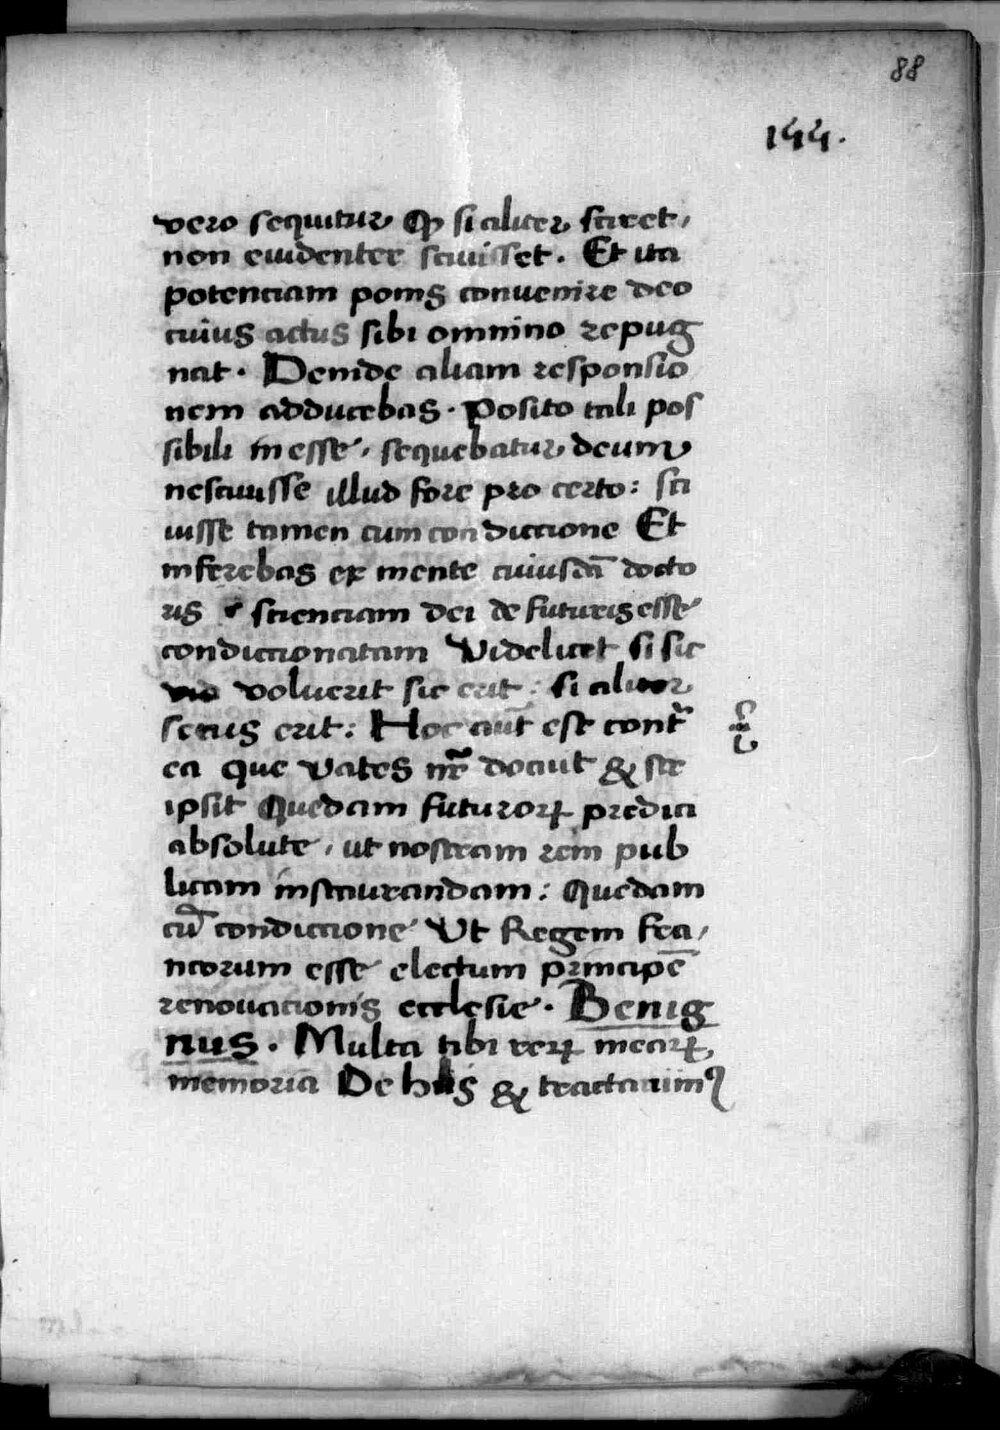 88
144.
vero sequitur ꝙ si aliter sciret,
non euidenter sciuisset. Et ita
potenciam ponis conuenire deo
cuius actus sibi omnino repug
nat. Deinde aliam responsio
nem adducebas. Posito tali pos
sibili in esse, sequebatur deum
nesciuisse illud fore pro certo: sci
uisse tamen cum condiccione Et
inferebas ex mente cuiusdā docto
ris scienciam dei de futuris esse
condiccionatam Videlicet si sic
voluerit sic erit: si aliter
secus erit: Hoc aut̄ est cont̄
ea que vates nr̄ docuit & scr
ipsit Quedam futuroꝝ predici
absolute, ut nostram rem pub
licam instaurandam: Quedam
cū condiccione Ut Regem fra,
ncorum esse electum principē
renouacionis ecclesie. Benig
nus. Multa tibi reꝝ mearꝝ
memoria De his & tractauimꝰ